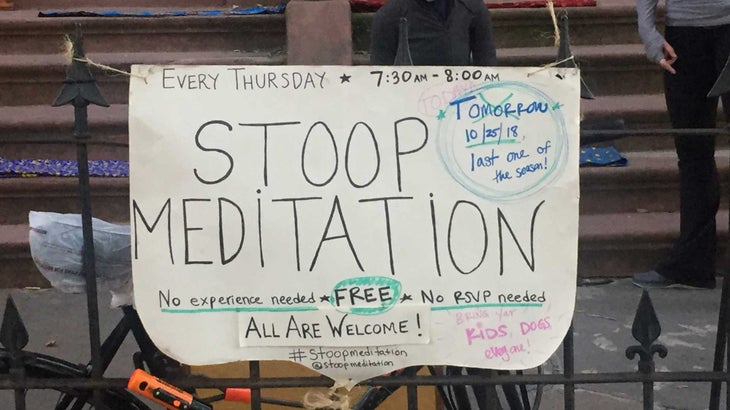 EVERY THURSDAY ★ 7:30AM - 8:00AM
TODAY
TOMORROW
10/25/18
last one of
the season!
STOOP
MEDITATION
No experience needed ★ FREE ★ No RSVP needed
ALL ARE WELCOME!
BRING Yar
KIDS, DOGS,
everyone!
#Stoopmeditation
@stoopmeditation